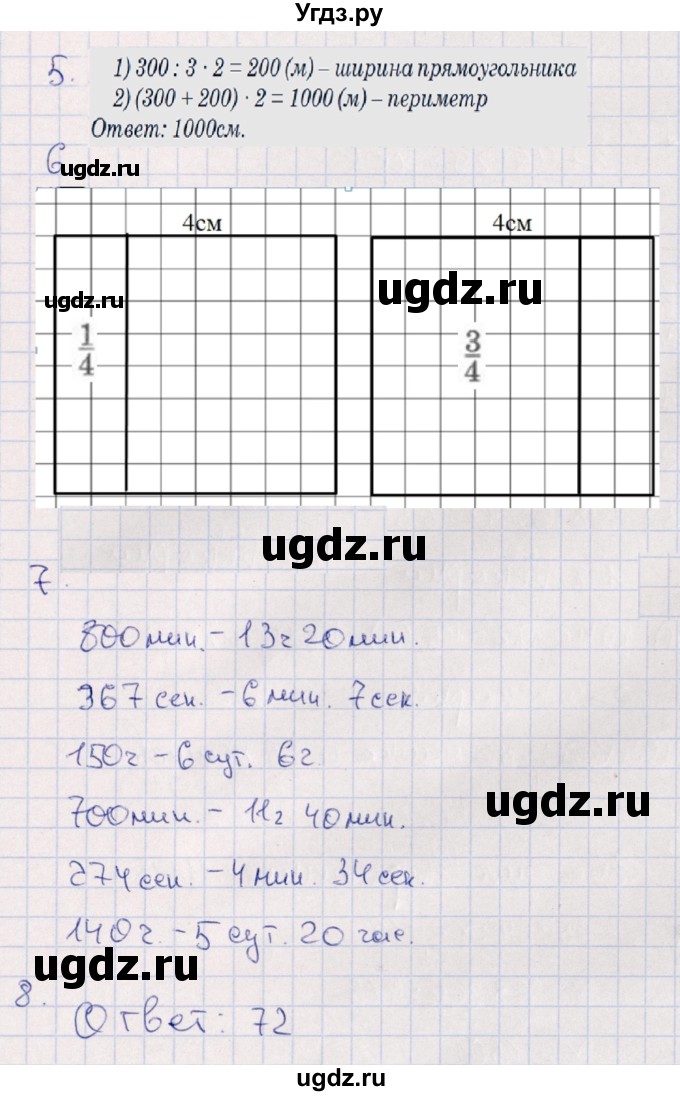 Угдз.ру
5.
1) 300 : 3 · 2 = 200 (м) – ширина прямоугольника
2) (300 + 200) · 2 = 1000 (м) – периметр
Ответ: 1000см.
6
ugdz.ru
4см 4см
ugdz.ru ugdz.ru
1/4 3/4
ugdz.ru
7
800 мин. – 13 ч 20 мин.
367 сек. – 6 мин. 7 сек.
150 ч – 6 сут. 6 ч
ugdz.ru
700 мин. – 11 ч 40 мин.
274 сек. – 4 мин. 34 сек.
140 ч. – 5 сут. 20 час.
ugdz.ru
8.
Ответ: 72
ugdz.ru